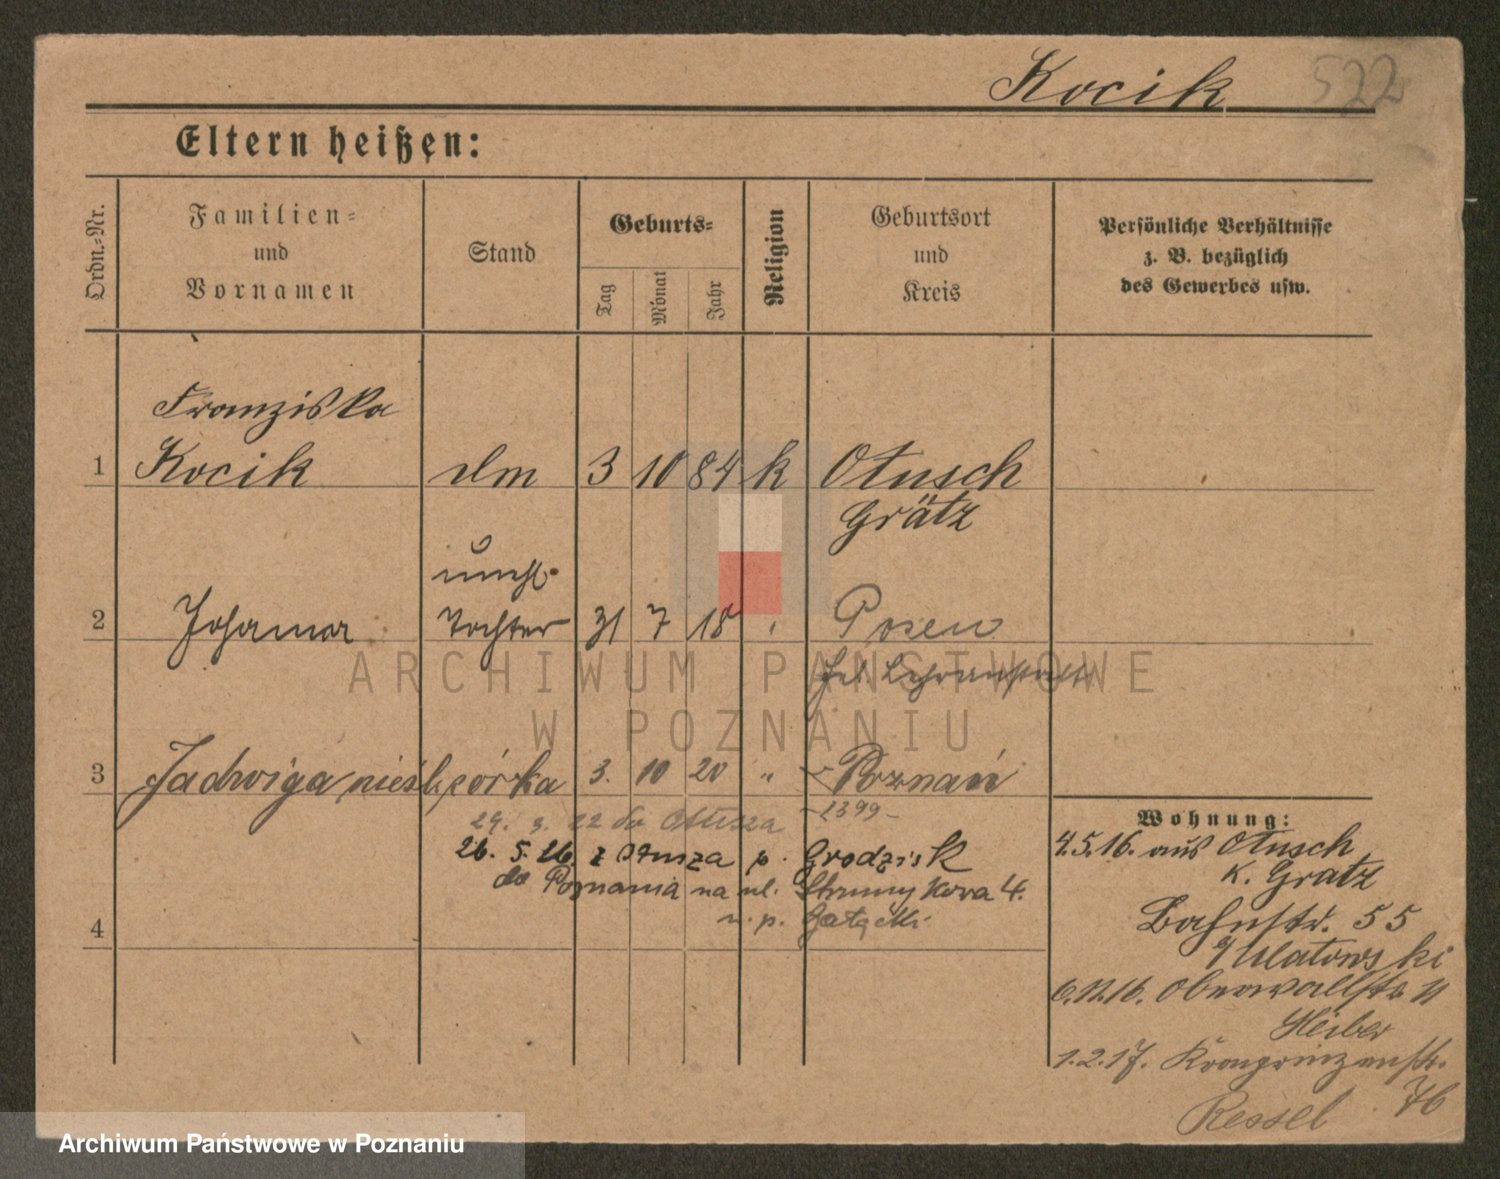 Kocik 522
Eltern heißen:
Ordn.=Nr.
Familien=
und
Vornamen
Stand
Geburts=
Tag
Monat
Jahr
Religion
Geburtsort
und
Kreis
Persönliche Verhältnisse
z. B. bezüglich
des Gewerbes usw.
Franziska
1 Kocik dm 3 10 84 k Otusch
Grätz
unehl.
2 Johanna Tochter 31 7 18 Posen
Lehranstalt
3 Jadwiga nieśl. córka 3. 10 20 " Poznań
29. 3. 22 do Otusza 1399
26. 5. 26. z Otusza p. Grodzisk
do Poznania na ul. Strumykowa 4.
4 u. p. Gałęcki
Wohnung:
4.5.16. aus Otusch
K. Gratz
Bahnstr. 55
6.12.16. Oberwallstr. 11
Heiber
1.2.17. Kronprinzenstr.
Ressel 76
ARCHIWUM PAŃSTWOWE
W POZNANIU
Archiwum Państwowe w Poznaniu